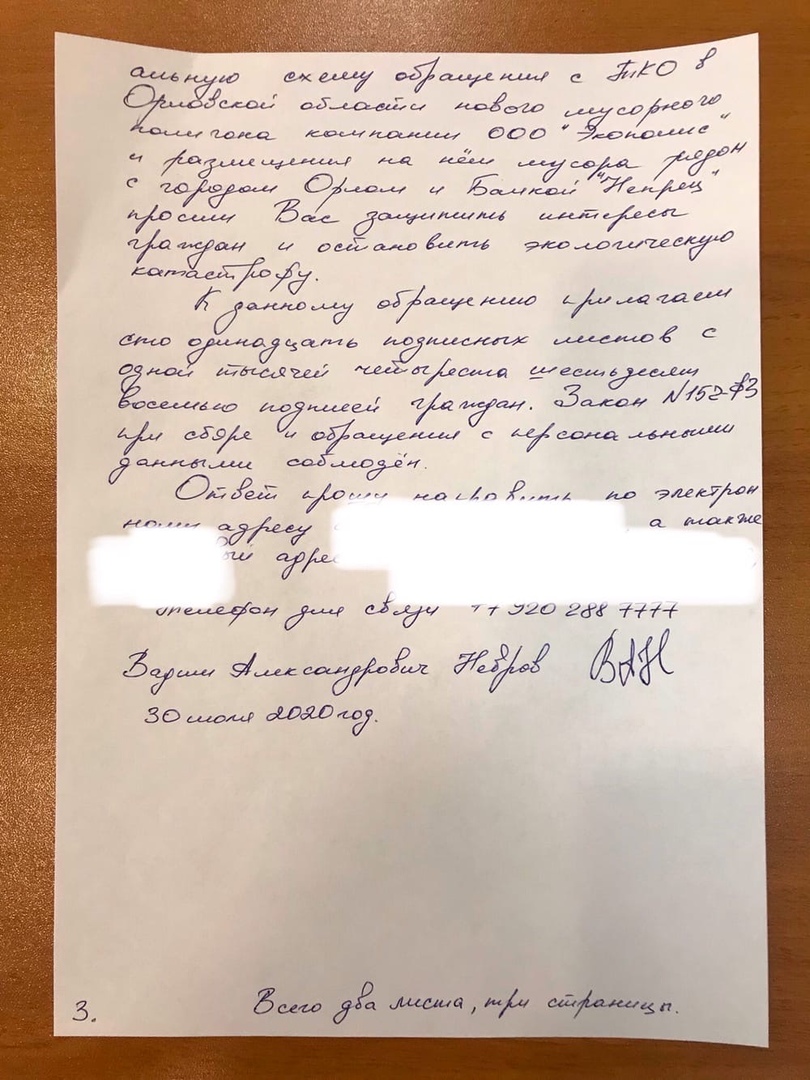 альную схему обращения с ТКО в
Орловской области нового мусорного
полигона компании ООО "Экополис"
и размещения на нём мусора рядом
с городом Орлом и Балкой "Непрец"
просим Вас защитить интересы
граждан и остановить экологическую
катастрофу.
К данному обращению прилагаем
сто одинадцать подписных листов с
одной тысячей четыреста шестьдесят
восемью подписей граждан. Закон №152-ФЗ
при сборе и обращения с персональными
данными соблюдён.
Ответ прошу направить по электрон
ному адресу а также
адрес
Телефон для связи +7 920 288 7777
Вадим Александрович Невров ВАН
30 июля 2020 год.
3. Всего два листа, три страницы.